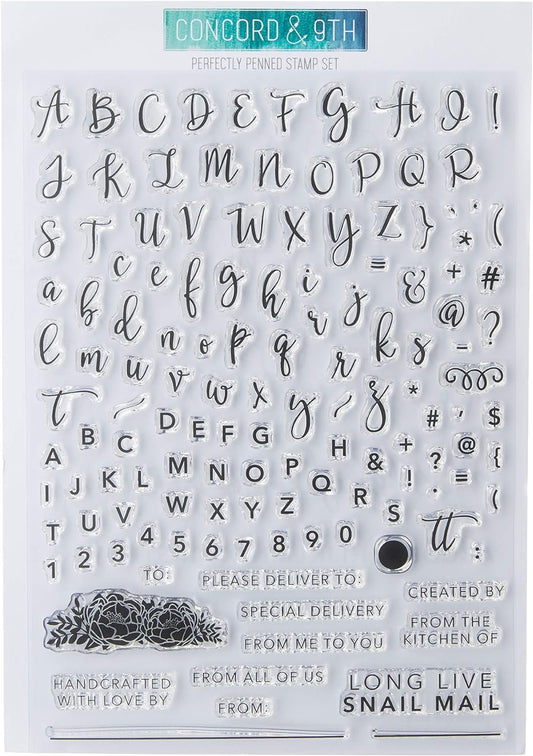 CONCORD & 9TH
PERFECTLY PENNED STAMP SET
A B C D E F G H I !
J K L M N O P Q R
S T U V W X Y Z } * ' (
a b c d e f g h i j = & + #
l m u n o p q r k s @ - ?
t ~ v w x y ~ z *
A B C D E F G H & + # ' $
I J K L M N O P Q R ! ? @ {
T U V W X Y Z S . = (
1 2 3 4 5 6 7 8 9 0 tt :
TO: PLEASE DELIVER TO: CREATED BY
SPECIAL DELIVERY
FROM ME TO YOU
FROM THE
KITCHEN OF
HANDCRAFTED
WITH LOVE BY
FROM ALL OF US
FROM:
LONG LIVE
SNAIL MAIL